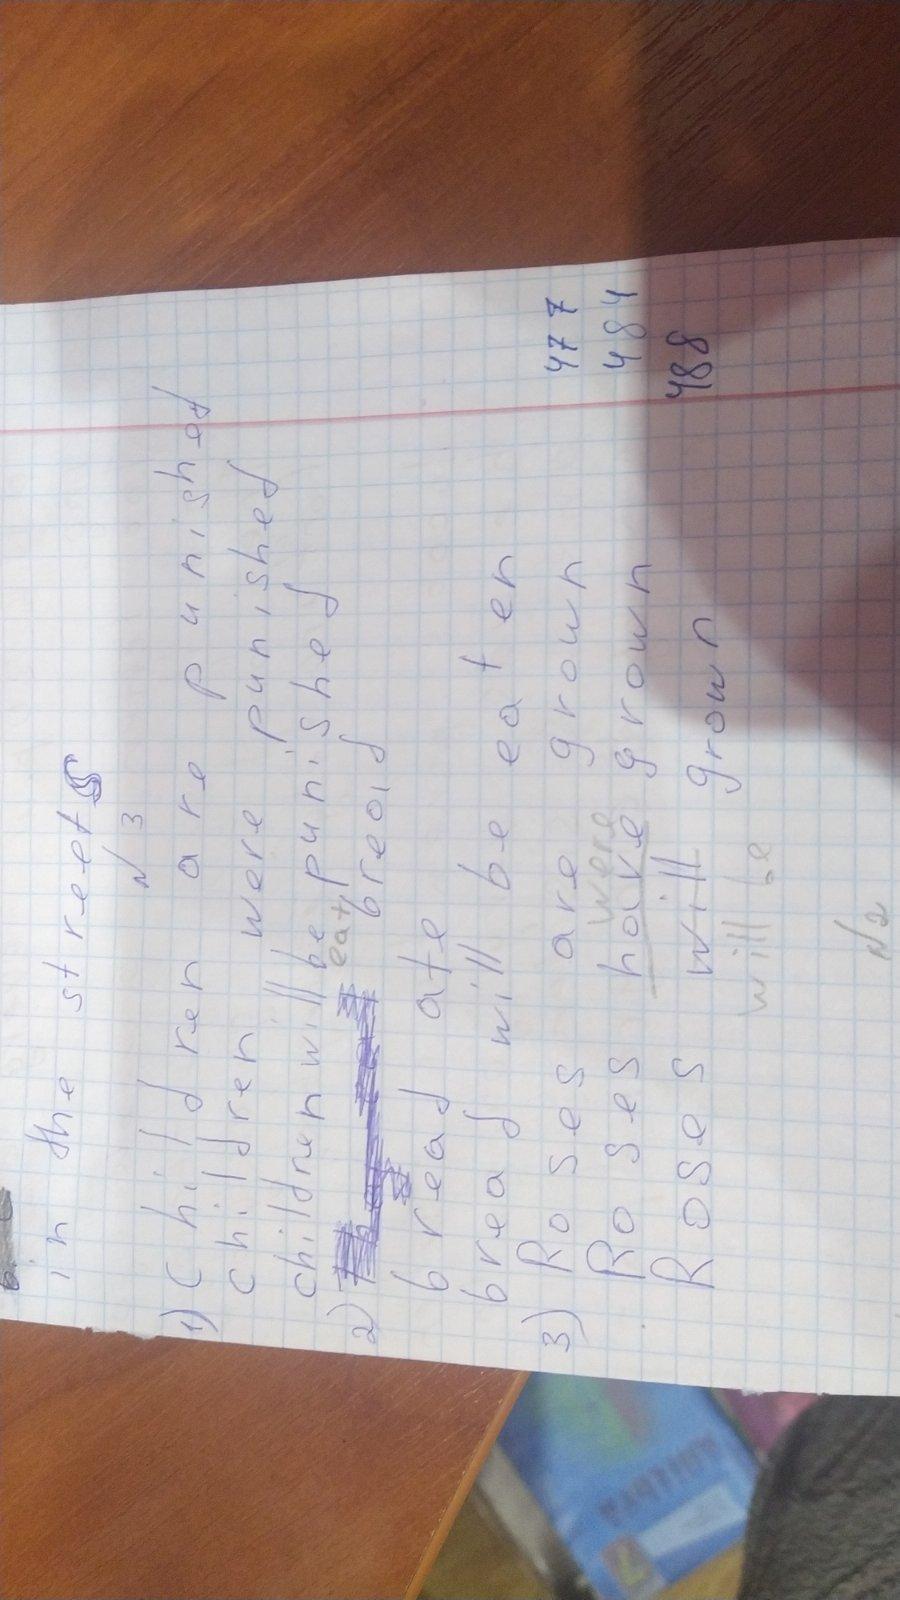 in the streets
N 3
1) Children are punished
children were punished
children will be punished
2) eat bread
bread ate
bread will be eaten
3) Roses are grown 477
were
Roses have grown 484
Roses will grown 488
will be
N2